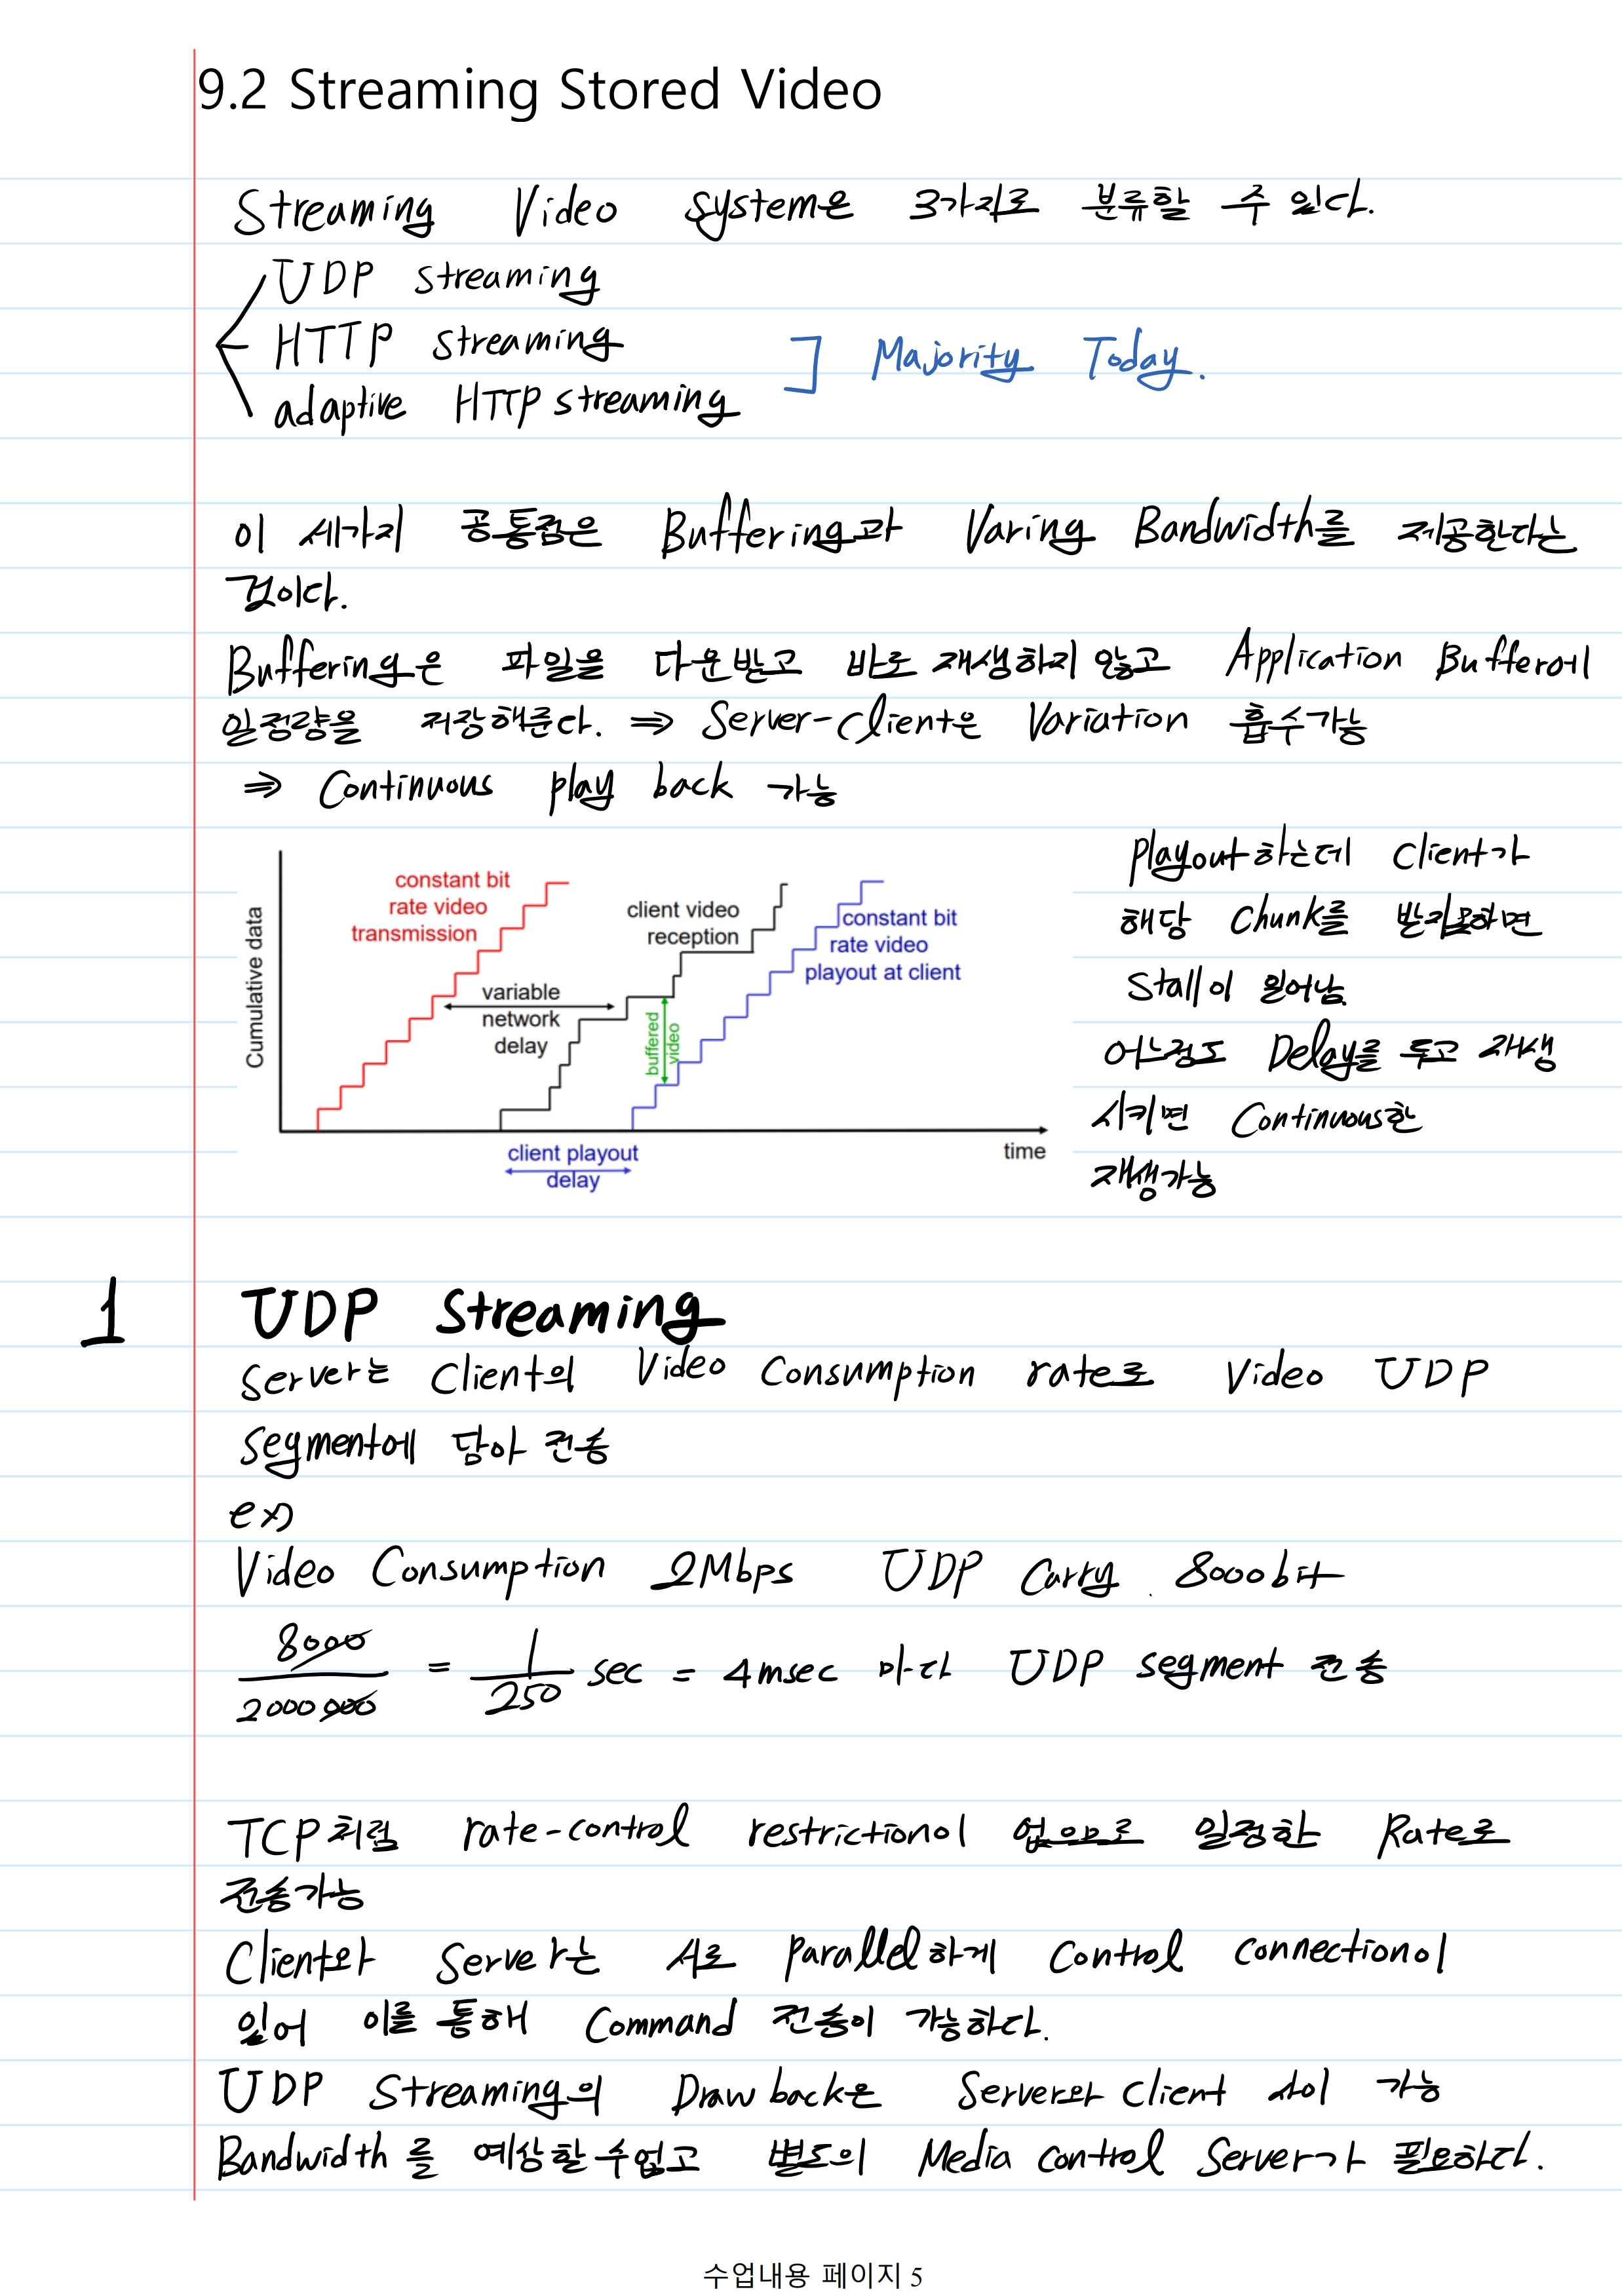 9.2 Streaming Stored Video
Streaming Video System은 3가지로 분류할 수 있다.
UDP streaming
HTTP streaming
adaptive HTTP streaming
] Majority Today.
이 세가지 공통점은 Buffering과 Varing Bandwidth를 제공한다는
것이다.
Buffering은 파일을 다운받고 바로 재생하지 않고 Application Buffer에
일정량을 저장해준다. ⇒ Server-Client은 Variation 흡수가능
⇒ Continuous play back 가능
Cumulative data
constant bit
rate video
transmission
variable
network
delay
client video
reception
buffered
video
constant bit
rate video
playout at client
client playout
delay
time
Playout하는데 Client가
해당 Chunk를 받지못하면
Stall이 일어남.
어느정도 Delay를 두고 재생
시키면 Continuous한
재생가능
1 UDP Streaming
Server는 Client의 Video Consumption rate로 Video UDP
Segment에 담아 전송
ex)
Video Consumption 2Mbps UDP Carry 8000bit
8000/2000000 = 1/250 sec = 4msec 마다 UDP segment 전송
TCP처럼 rate-control restriction이 없으므로 일정한 Rate로
전송가능
Client와 Server는 서로 parallel하게 Control connection이
있어 이를 통해 Command 전송이 가능하다.
UDP Streaming의 Draw back은 Server와 Client 사이 가능
Bandwidth를 예상할 수 없고 별도의 Media control Server가 필요하다.
수업내용 페이지 5